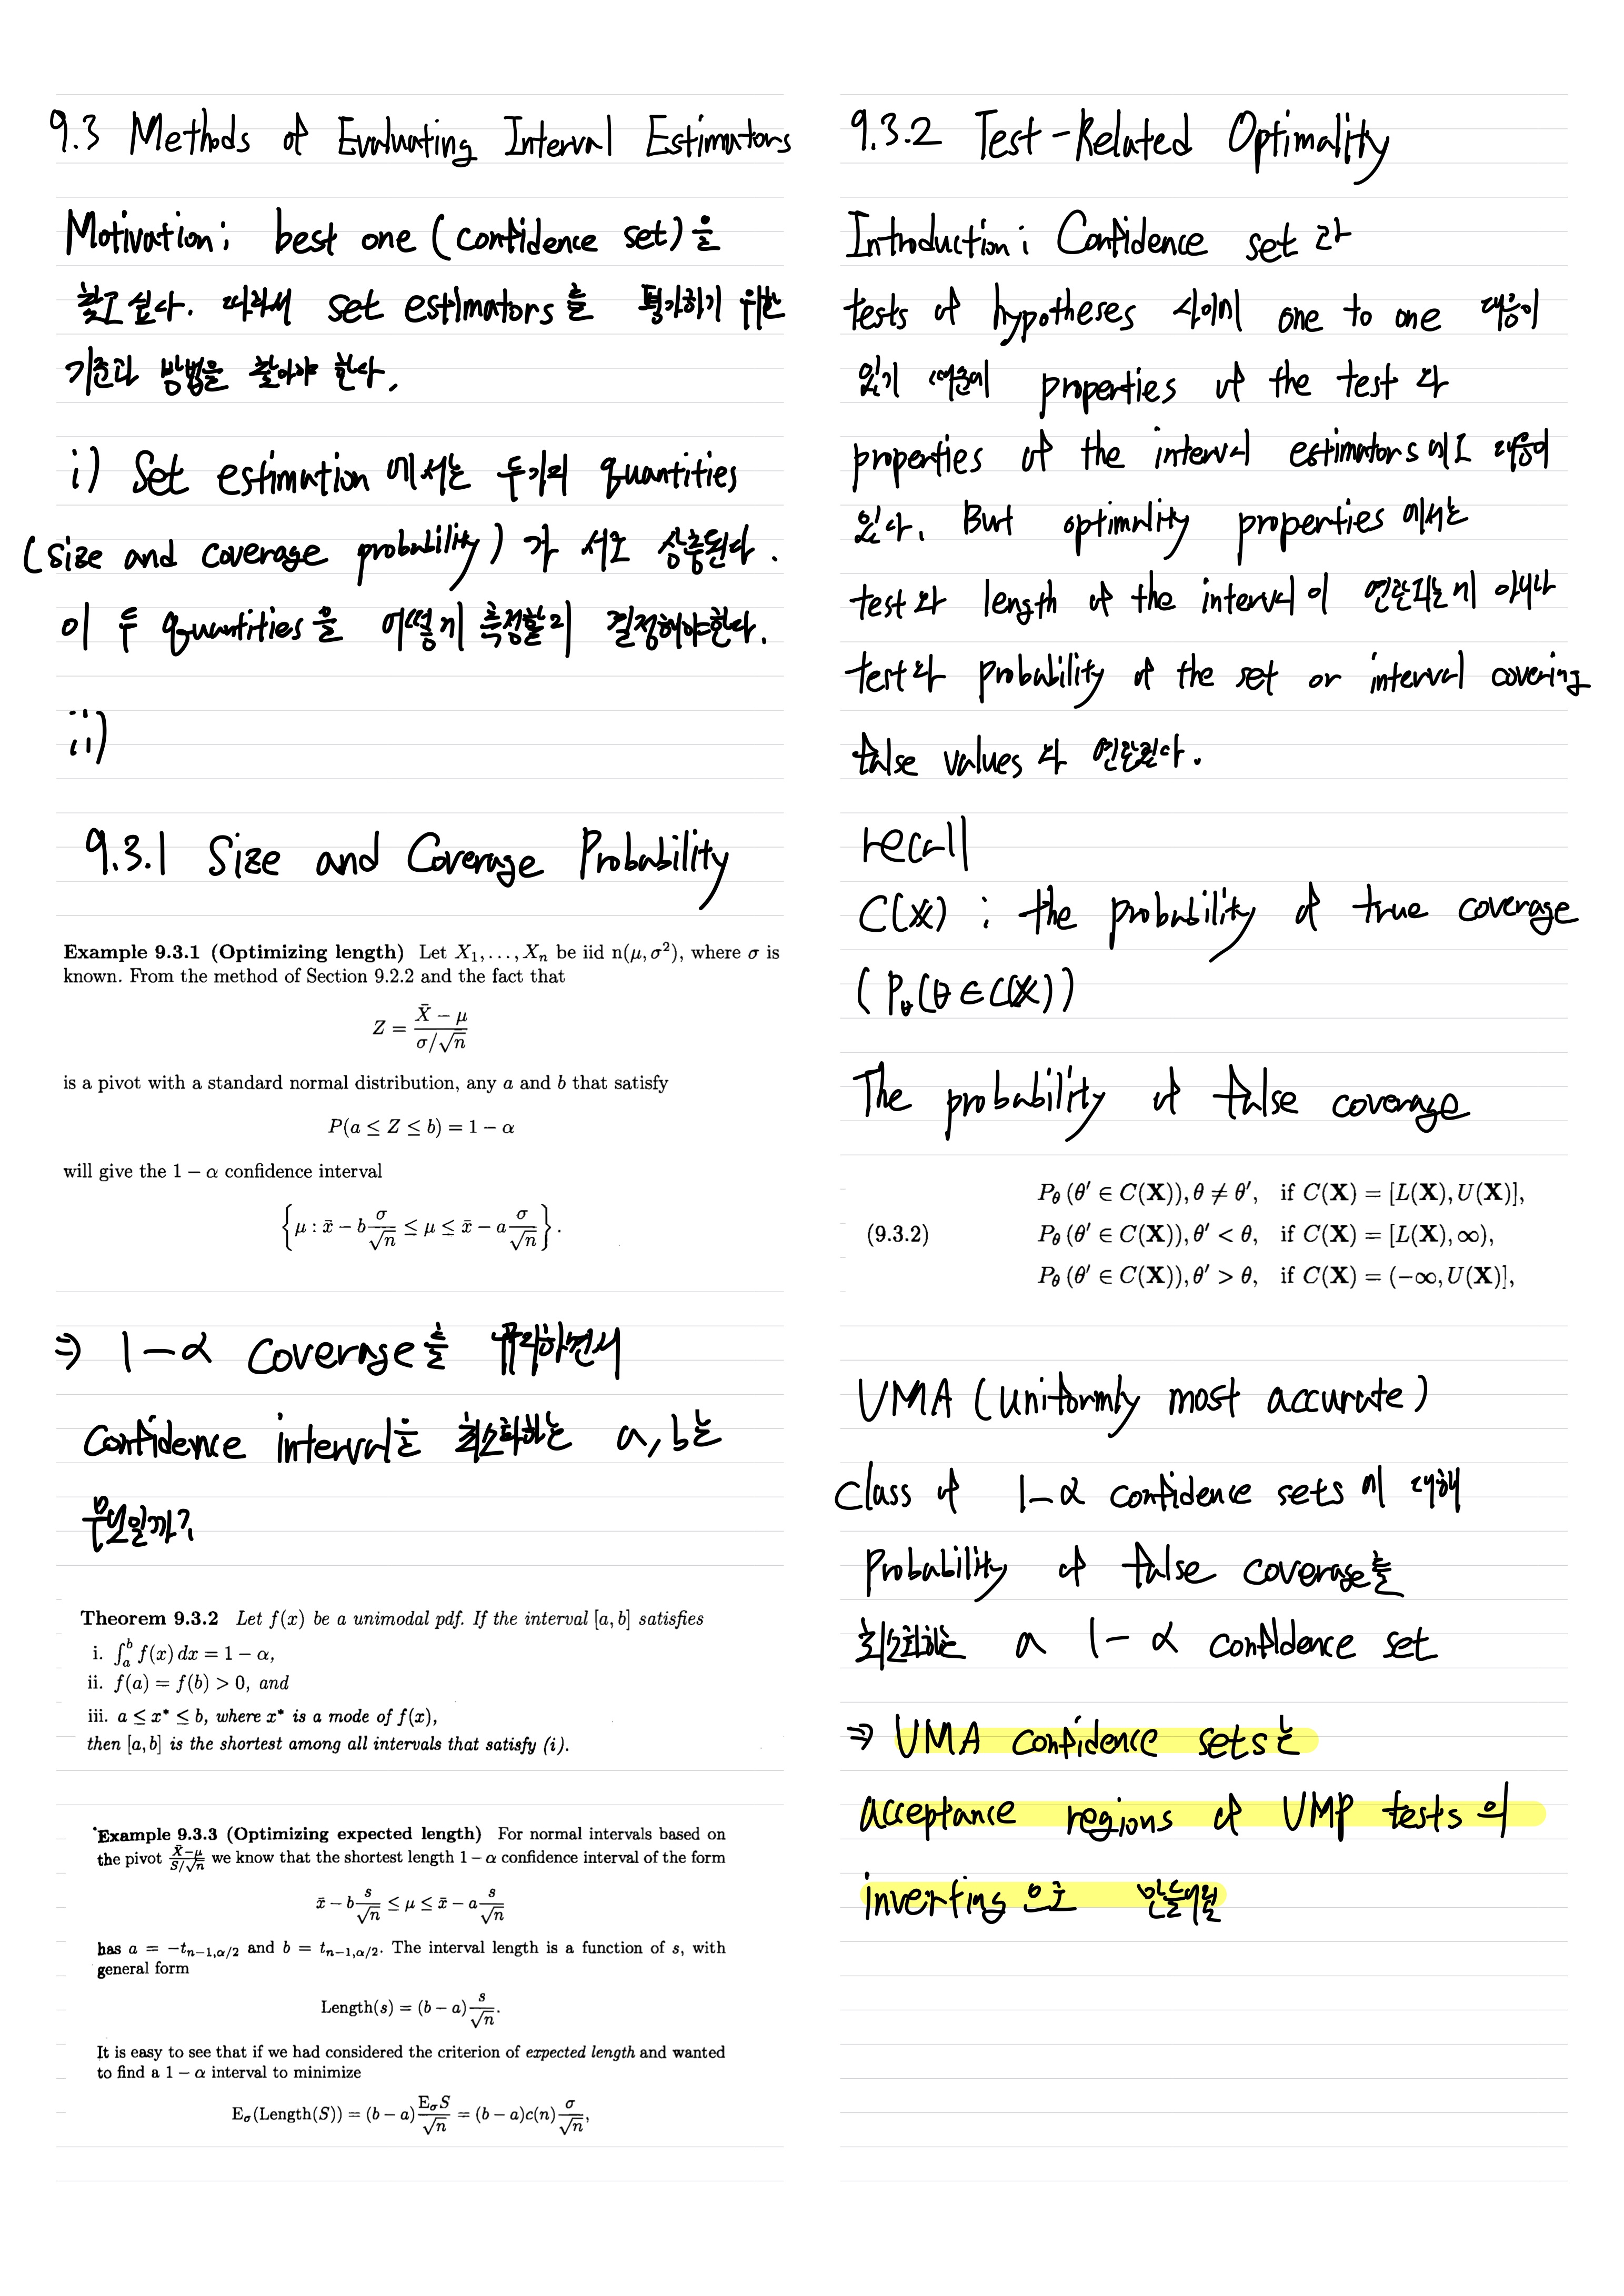 9.3 Methods of Evaluating Interval Estimators
Motivation; best one (confidence set)을
찾고 싶다. 따라서 set estimators를 평가하기 위한
기준과 방법을 찾아야 한다.
i) Set estimation 에서는 두가지 quantities
(size and coverage probability)가 서로 상충된다.
이 두 quantities을 어떻게 측정할지 결정해야한다.
ii)
9.3.1 Size and Coverage Probability
Example 9.3.1 (Optimizing length) Let X₁, . . . , Xₙ be iid n(μ, σ²), where σ is
known. From the method of Section 9.2.2 and the fact that
Z = (X̄ − μ)/(σ/√n)
is a pivot with a standard normal distribution, any a and b that satisfy
P(a ≤ Z ≤ b) = 1 − α
will give the 1 − α confidence interval
{μ : x̄ − b σ/√n ≤ μ ≤ x̄ − a σ/√n}.
⇒ 1−α Coverage를 유지하면서
Confidence interval을 최소화하는 a, b는
무엇일까?
Theorem 9.3.2 Let f(x) be a unimodal pdf. If the interval [a, b] satisfies
i. ∫ₐᵇ f(x) dx = 1 − α,
ii. f(a) = f(b) > 0, and
iii. a ≤ x* ≤ b, where x* is a mode of f(x),
then [a, b] is the shortest among all intervals that satisfy (i).
Example 9.3.3 (Optimizing expected length) For normal intervals based on
the pivot (X̄−μ)/(S/√n) we know that the shortest length 1 − α confidence interval of the form
x̄ − b s/√n ≤ μ ≤ x̄ − a s/√n
has a = −tₙ₋₁,α/2 and b = tₙ₋₁,α/2. The interval length is a function of s, with
general form
Length(s) = (b − a) s/√n.
It is easy to see that if we had considered the criterion of expected length and wanted
to find a 1 − α interval to minimize
E_σ(Length(S)) = (b − a) E_σS/√n = (b − a)c(n) σ/√n,
9.3.2 Test-Related Optimality
Introduction; Confidence set 과
tests of hypotheses 사이에 one to one 대응이
있기 때문에 properties of the test 와
properties of the interval estimators에도 대응이
있다. But optimality properties 에서는
test와 length of the interval이 연관되는게 아니라
test와 probability of the set or interval covering
false values 와 연관된다.
recall
C(X) ; the probability of true coverage
(P_θ(θ ∈ C(X)))
The probability of false coverage
P_θ (θ′ ∈ C(X)), θ ≠ θ′, if C(X) = [L(X), U(X)],
(9.3.2) P_θ (θ′ ∈ C(X)), θ′ < θ, if C(X) = [L(X), ∞),
P_θ (θ′ ∈ C(X)), θ′ > θ, if C(X) = (−∞, U(X)],
UMA (uniformly most accurate)
class of 1−α confidence sets 에 대해
Probability of false coverage를
최소화하는 a 1−α confidence set
⇒ UMA confidence sets는
acceptance regions of UMP tests 의
inverting 으로 만들어짐